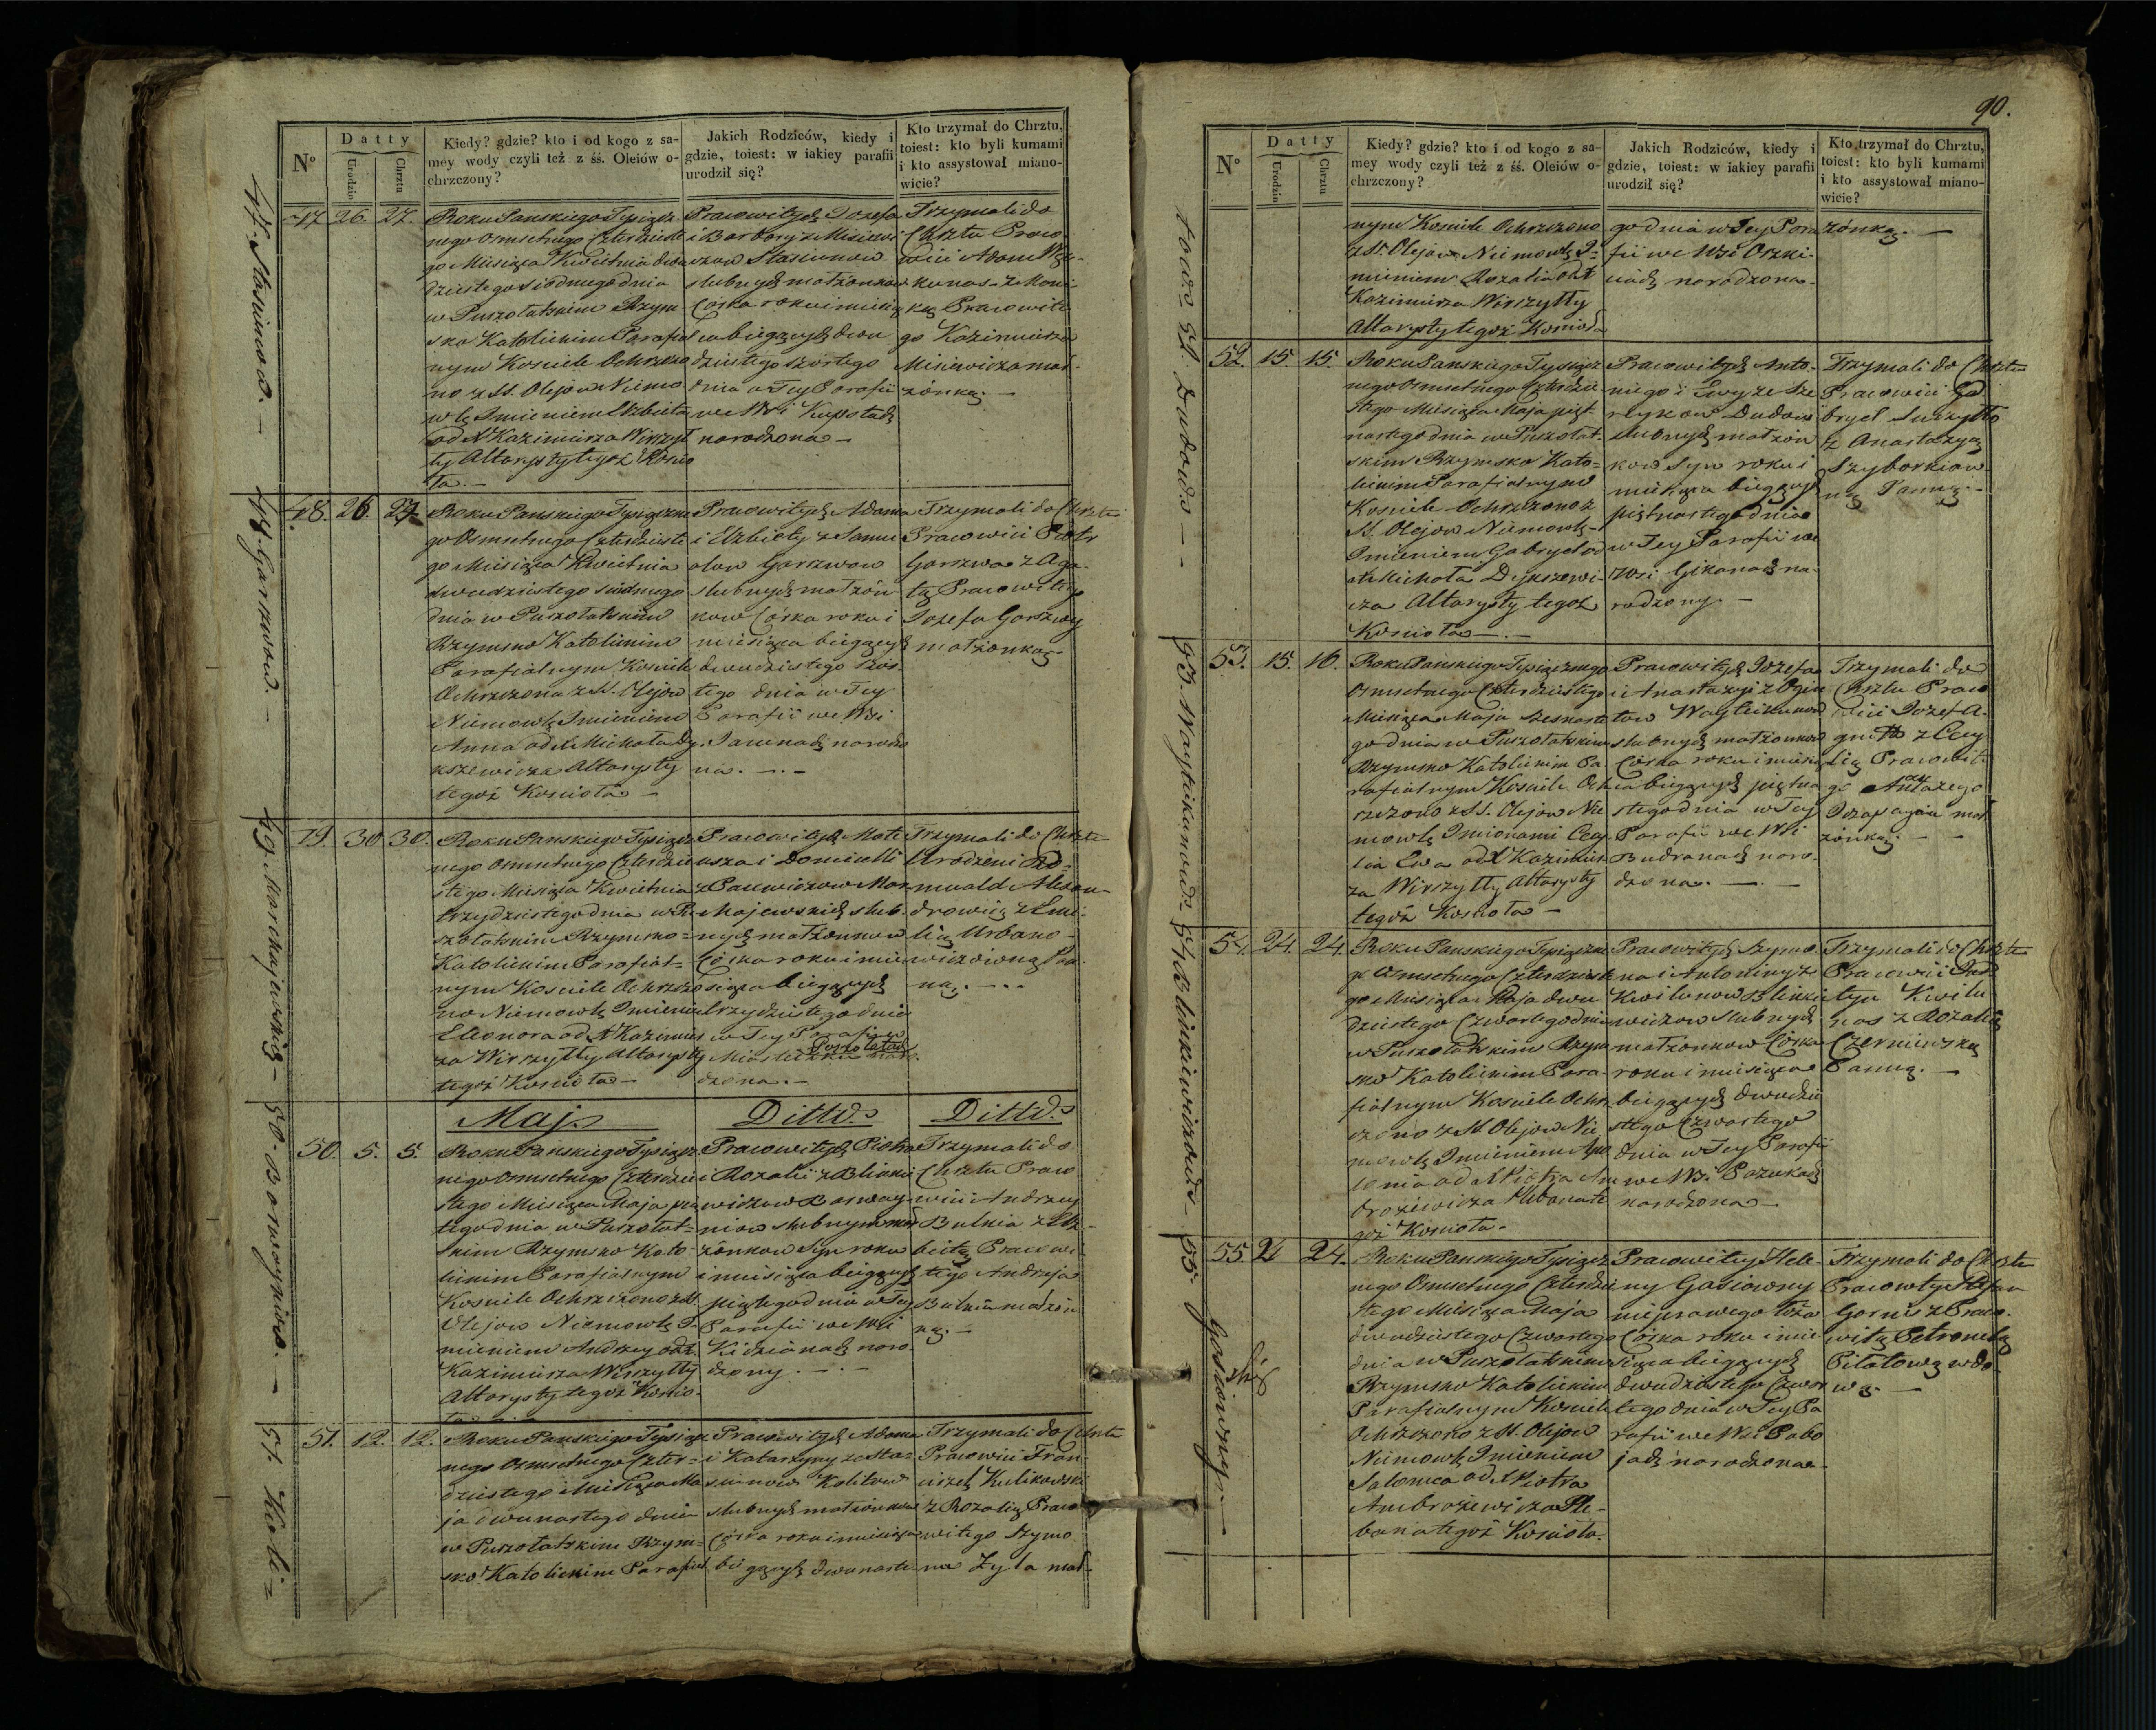 N°
Datty
Urodzin
Chrztu
Kiedy? gdzie? kto i od kogo z sa-
mey wody czyli też z śś. Oleiów o-
chrzczony?
Jakich Rodziców, kiedy i
gdzie, toiest: w iakiey parafii
urodził się?
Kto trzymał do Chrztu,
toiest: kto byli kumami
i kto assystował miano-
wicie?
47. 26. 27.
Roku Panskiego Tysiącz-
nego Osmsetnego Czterdzieste
go Miesiąca Kwietnia dwu
dziestego siodmego dnia
w Puszołatskim Rzym
sko Katolickim Parafial
nym Kosciele Ochrzczo
no z SS. Olejow Niemo
wle Imieniem Elżbieta
od X Kazimierza Wirszył
ły Altarysty tegoż Koscio
ła.
Pracowitych Jozefa
i Barbary z Misiewi
czow Stasiunow
slubnych małżonkow
Córka roku i miesią
ca biegących dwu
dziestego szostego
dnia w Tey Parafii
we Wsi
narodzona
Trzymali do
Chrztu Praco
wici Adam
z
Pracowite
go Kazimierza
Misiewicza mał
żonką.
48. 26. 27
Roku Panskiego Tysiączne
go Osmsetnego Czterdzieste
go Miesiąca Kwietnia
dwudziestego siodmego
dnia w Puszołatskim
Rzymsko Katolickim
Parafialnym Kosciele
Ochrzczona z SS. Olejow
Niemowle Imieniem
Anna od X Michała Dy
kszewicza Altarysty
tegoż Koscioła
Pracowitych Adama
i Elżbiety z
Garszwow
slubnych małżon
kow Córka roku i
miesiąca biegących
dwudziestego szos
tego dnia w Tey
Parafii we Wsi
narodzo
na.
Trzymali do Chrztu
Pracowici Piotr
Garszwa z Aga
tą Pracowitego
Jozefa Garszwy
małżonką.
49. 30 30.
Roku Panskiego Tysiącz
nego Osmsetnego Czterdzie
stego Miesiąca Kwietnia
trzydziestego dnia w Pu
szołatskim Rzymsko
Katolickim Parafial
nym Kosciele Ochrzczo
no Niemowle Imieniem
Eleonora od X Kazimier
za Wirszyłły Altarysty
tegoż Koscioła
Pracowitych Mate
usza i Domicelli
slub
nych małżonkow
Córka roku i mie
siąca biegących
trzydziestego dnia
w Tey Parafii w
Miasteczku naro
dzona.
Trzymali do Chrztu
Urodzeni Ro-
muald Alexan
drowicz z Emi
lią Urbano
wiczówną Pan
ną.
Maj
Ditto
Ditto
50. 5. 5.
Roku Panskiego Tysiącz
nego Osmsetnego Czterdzie
stego Miesiąca Maja pią
tego dnia w Puszołat
skim Rzymsko Kato
lickim Parafialnym
Kosciele Ochrzczono z SS
Olejow Niemowle I
mieniem Andrzey od X
Kazimierza Wirszyłły
Altarysty tegoż Koscio
Pracowitych Piotra
i Rozalii z Blinki
wiczow
slubnych mał
żonkow Syn roku
i miesiąca biegących
piątego dnia w Tey
Parafii we Wsi
naro
dzony.
Trzymali do
Chrztu Praco
wici Andrzey
Butnia z Elż
bietą Pracowi
tego Andrzeja
Butnia małżon
ką.
51. 12. 12.
Roku Panskiego Tysiącz
nego Osmsetnego Czter-
dziestego Miesiąca Ma
ja dwunastego dnia
w Puszołatskim Rzym
sko Katolickim Parafial
Pracowitych Adama
i Katarzyny ze Sta
siunow Kolitow
slubnych małżonkow
Córka roku i miesiąca
biegących dwunaste
Trzymali do Chrztu
Pracowici Fran
ciszek Kulikowski
z Rozalią Praco
witego Szymo
na Żyla mał
47. Stasiunow.
48. Garszwow.
51. Koli=
90.
N°
Datty
Urodzin
Chrztu
Kiedy? gdzie? kto i od kogo z sa-
mey wody czyli też z śś. Oleiów o-
chrzczony?
Jakich Rodziców, kiedy i
gdzie, toiest: w iakiey parafii
urodził się?
Kto trzymał do Chrztu,
toiest: kto byli kumami
i kto assystował miano-
wicie?
nym Kosciele Ochrzczono
z SS. Olejow Niemowle I
mieniem Rozalia od X
Kazimierza Wirszyłły
Altarysty tegoż Kosciola
go dnia w Tey Para
fii we Wsi
narodzona.
żonką.
52. 15. 15.
Roku Panskiego Tysiącz
nego Osmsetnego Czterdzie
stego Miesiąca Maja pięt
nastego dnia w Puszołat
skim Rzymsko Kato=
lickim Parafialnym
Kosciele Ochrzczono z
SS. Olejow Niemowle
Imieniem Gabryel od
X Michała Dykszewi
cza Altarysty tegoż
Kosciola
Pracowitych Anto
niego i Ewy ze
Dudow
slubnych małżon
kow Syn roku i
miesiąca biegących
piętnastego dnia
w Tey Parafii we
Wsi na
rodzony.
Trzymali do Chrztu
Pracowici Ga
bryel
z Anastazyą
ną Panną.
53. 15. 16.
Roku Panskiego Tysiącznego
Osmsetnego Czterdziestego
Miesiąca Maja szesnaste
go dnia w Puszołatskim
Rzymsko Katolickim Pa
rafialnym Kosciele Och
rzczono z SS. Olejow Nie
mowle Imionami Cecy
lia Ewa od X Kazimier
za Wirszyłły Altarysty
tegoż Kosciola
Pracowitych Jozefa
i Anastazyi z
slubnych małżonkow
Córka roku i miesią
ca biegących piętna
stego dnia w Tey
Parafii we Wsi
naro
dzona.
Trzymali do
Chrztu Praco
wici Jozef
z Cecy
lią Pracowite
go
mał
żonką.
54. 24. 24.
Roku Panskiego Tysiączne
go Osmsetnego Czterdzieste
go Miesiąca Maja dwu
dziestego Czwartego dnia
w Puszołatskim Rzym
sko Katolickim Para
fialnym Kosciele Ochrz
czono z SS. Olejow Nie
mowle Imieniem Apo
lonia od X Piotra Am
brożewicza Plebana te
goż Kosciola.
Pracowitych Szymo
na i Antoniny z
Kwilunow Blinkie
wiczow slubnych
małżonkow Córka
roku i miesiąca
biegących dwudzie
stego Czwartego
dnia w Tey Parafii
we Wsi
narodzona
Trzymali do Chrztu
Pracowici Jus
tyn Kwilu
nas z Rozalią
Czerniewską
Panną.
55. 24 24.
Roku Panskiego Tysiącz
nego Osmsetnego Czterdzie
stego Miesiąca Maja
dwudziestego Czwartego
dnia w Puszołatskim
Rzymsko Katolickim
Parafialnym Kosciele
Ochrzczono z SS. Olejow
Niemowle Imieniem
Salomea od X Piotra
Ambrożewicza Ple-
bana tegoż Kosciola.
Pracowitey Hele
ny Gasiowny
nieprawego łoża
Córka roku i mie
siąca biegących
dwudziestego Czwar
tego dnia w Tey Pa
rafii we Wsi
narodzona
Trzymali do Chrztu
Pracowity Stefan
z Praco
witą Petronelą
Pilatową wdo
wą.
towo 52. Dudowo
54. Blinkiewiczowo
55. Gasiowny.